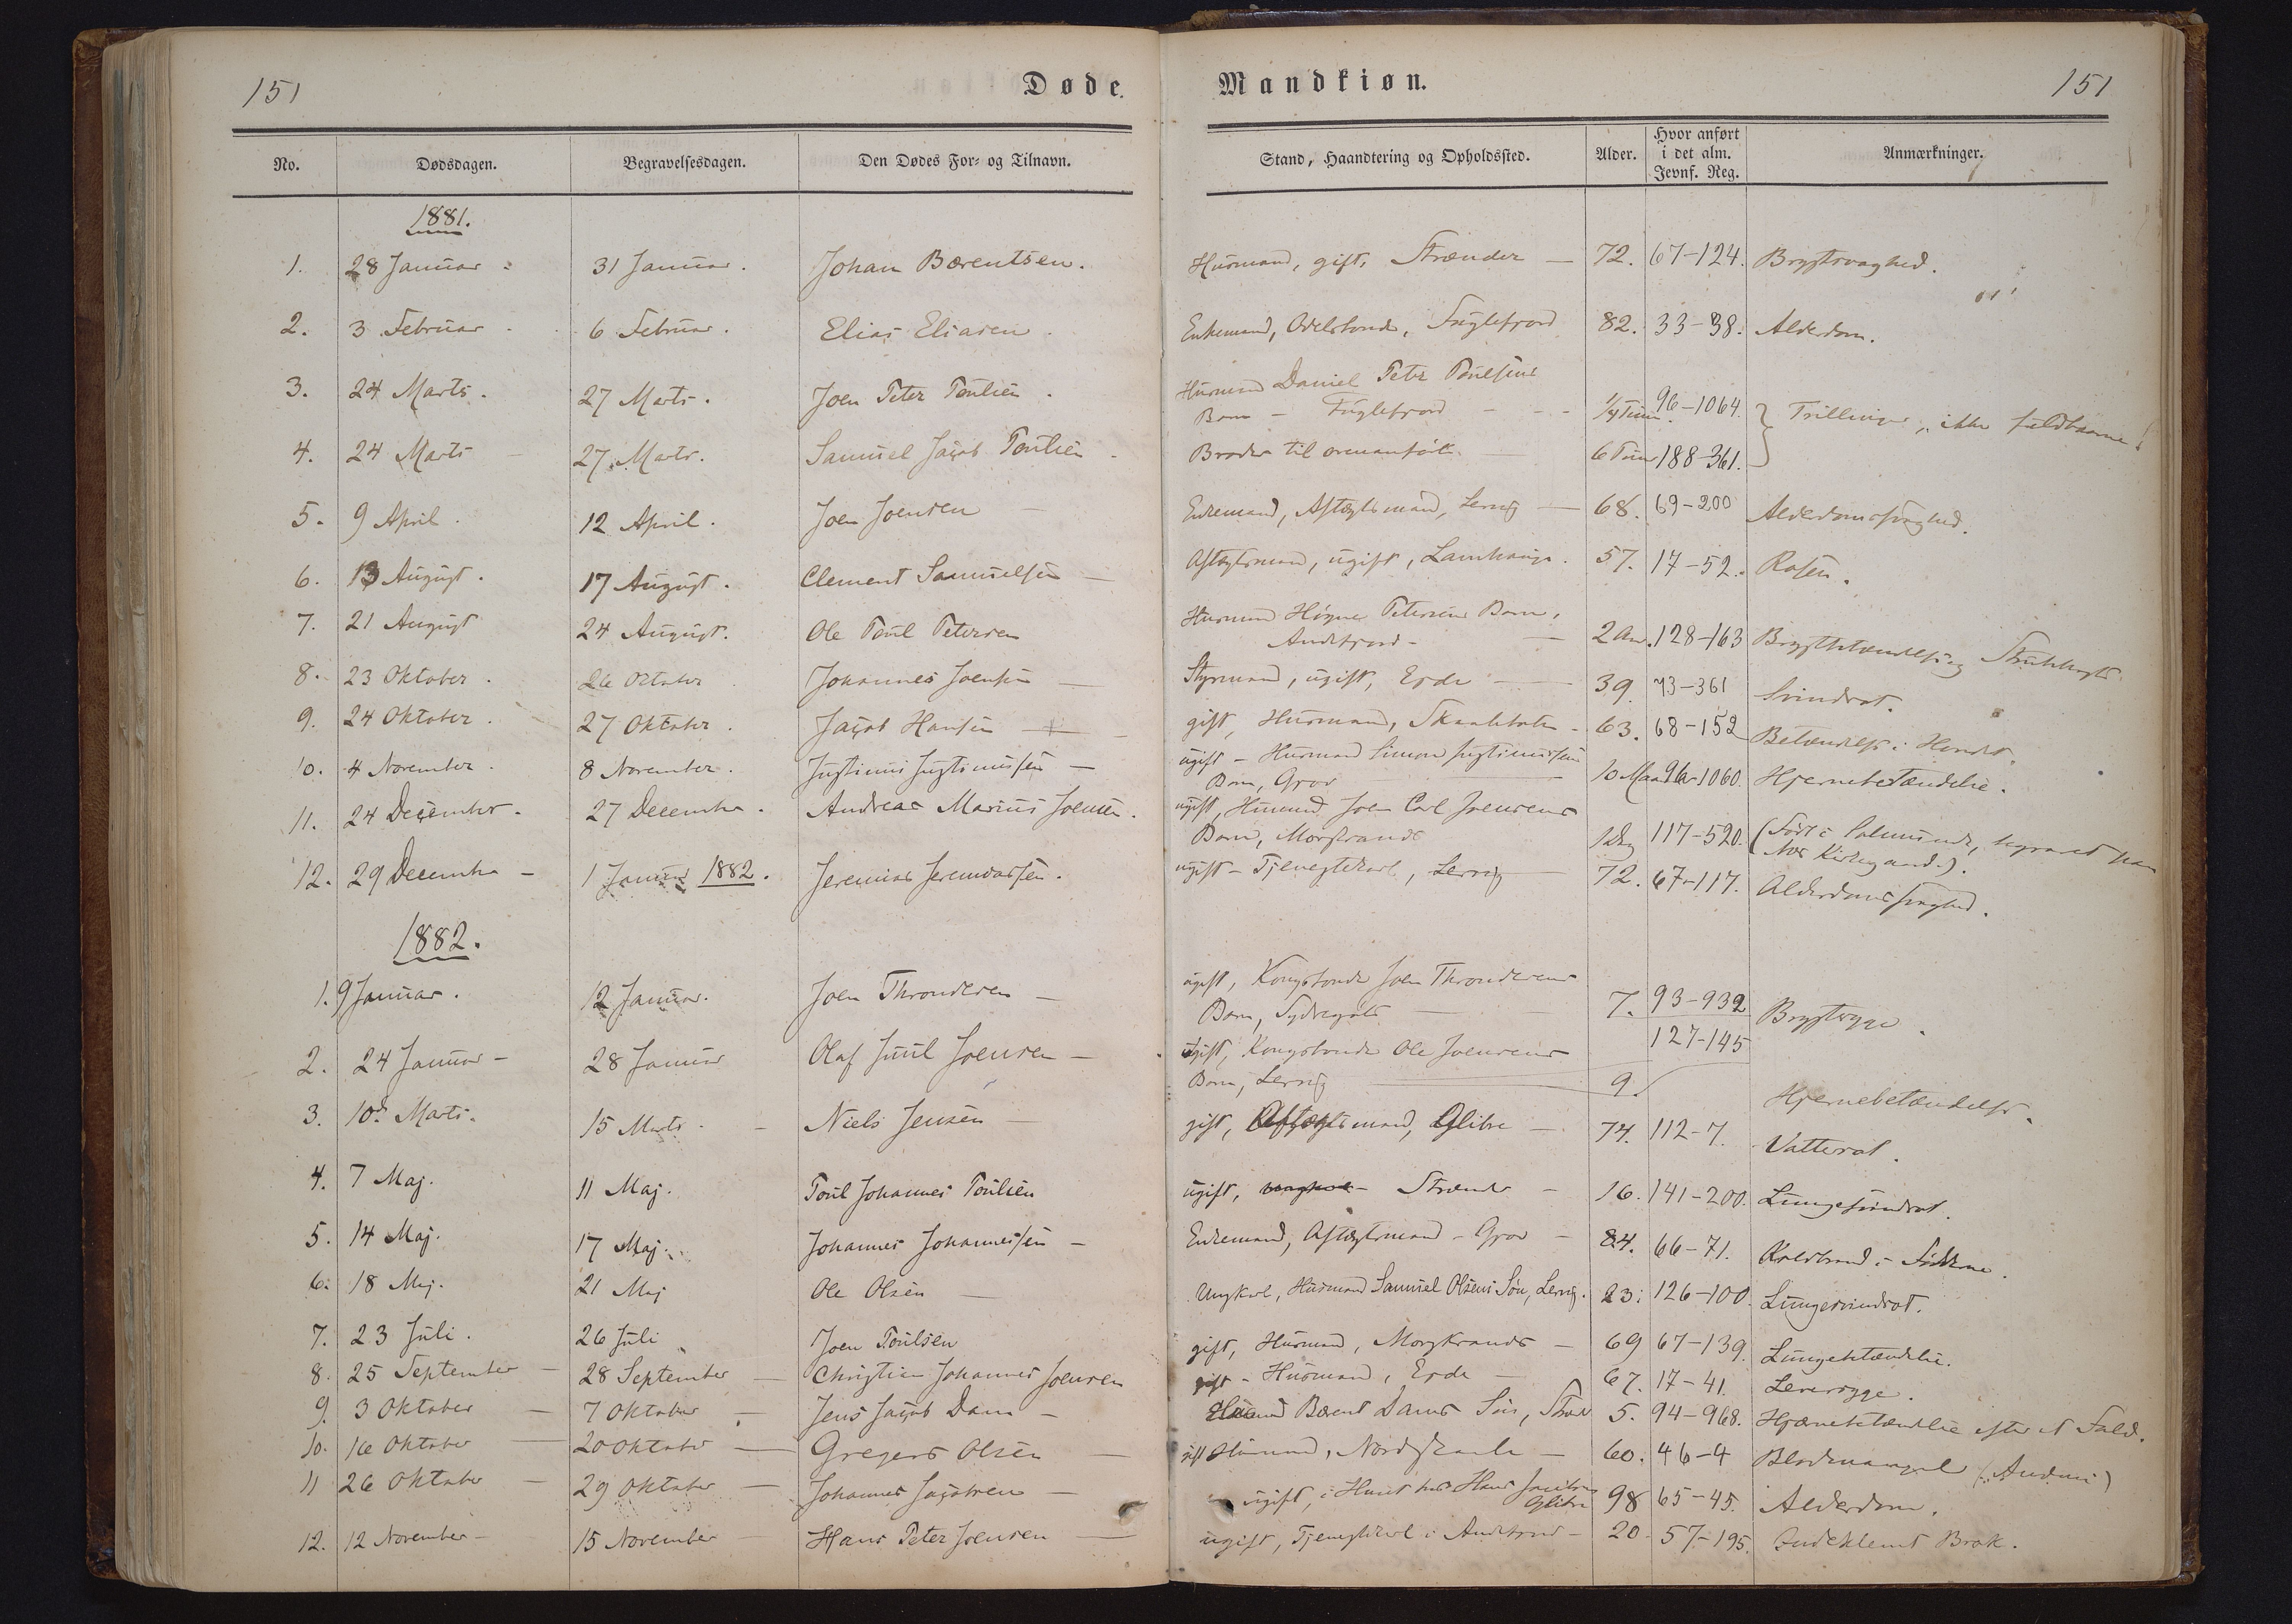 151
Døde.
Mandkiøn.
151
No. Dødsdagen. Begravelsesdagen. Den Dødes For- og Tilnavn. Stand, Haandtering og Opholdssted. Alder. Hvor anført i det alm. Jevnf. Reg. Anmærkninger.
1881.
1. 28 Januar 31 Januar. Johan Bærentsen. Husmand, gift, Strænder 72. 67-124. Brystsvaghed.
2. 3 Februar 6 Februar. Elias Eliasen Enkemand, Odelsbonde, Fuglefjord 82. 33-38. Alderdom.
3. 24 Marts. 27 Marts. Joen Peter Poulsen Husmand Daniel Peter Poulsens
Barn - Fuglefjord 1/4 Time 96-1064. Trillinger, ikke fuldbaarne
4. 24 Marts 27 Marts. Samuel Jacob Poulsen Broder til 6 Timer 188-361.
5. 9 April. 12 April. Joen Joensen Enkemand, Aftægtsmand, Lervig 68. 69-200 Alderdomssvaghed.
6. 13 August. 17 August. Clement Samuelsen Aftægtsmand, ugift, Lamhauge. 57. 17-52. Rosen.
7. 21 August 24 August. Ole Poul Petersen Husmand Høgne Petersens Barn,
Andefjord 2 Aar. 128-163 Brystbetændelse, Strubehoste
8. 23 Oktober. 26 October Johannes Joensen Styrmand, ugift, Eyde 39. 73-361 Svindsot.
9. 24 Oktober. 27 Oktober. Jacob Hansen gift, Husmand, Skaalebotn 63. 68-152 Betændelse i Hovedet.
10. 4 November. 8 November. Justinus Justinussen ugift - Husmand Simon Justinussens
Barn, Grov 10 Maa 96-1060. Hjernebetændelse.
11. 24 December. 27 December. Andreas Marius Joensen. ugift, Husmand Joen Carl Joensens
Barn, Morskranes 1 Dag 117-520. (Født i Salmunde, begravet paa
Næs Kirkegaard.)
12. 29 December 1 Januar 1882. Jeremias Jeremiassen. ugift - Tjenestekarl, Lervig 72. 67-117. Alderdomssvaghed.
1882.
1. 9 Januar. 12 Januar. Joen Throndesen ugift, Kongsbonde Joen Throndesens
Barn, Sydregøte 7. 93-932 Brystsyge.
2. 24 Januar 28 Januar Olaf Juul Joensen ugift, Kongsbonde Ole Joensens 127-145
Barn, Lervig 9. Hjernebetændelse.
3. 10de Marts. 15 Marts. Niels Jensen gift, Aftægtsmand, Glibre 74. 112-7. Vattersot.
4. 7 Maj. 11 Maj. Poul Johannes Poulsen ugift, Strænder 16. 141-200. Lungesvindsot.
5. 14 Maj. 17 Maj. Johannes Johannessen Enkemand, Aftægtsmand - Grov 84. 66-71. Koldbrand i Fødderne.
6. 18 Maj. 21 Maj Ole Olsen Ungkarl, Husmand Samuel Olsens Søn, Lervig. 23. 126-100. Lungesvindsot.
7. 23 Juli. 26 Juli Joen Poulsen gift, Husmand, Morskranes 69 67-139. Lungebetændelse.
8. 25 September 28 September Christian Johannes Joensen gift - Husmand, Eyde 67. 17-41. Leversyge.
9. 3 Oktober 7 Oktober Jens Jacob Dam Husmand Bærent Dams Søn, 5. 94-968. Hjernebetændelse efter et Fald.
10. 16 Oktober 20 Oktober Gregers Olsen gift Husmand, Nordskaale 60. 46-4 Blodmangel (Anæmi)
11 26 Oktober 29 Oktober Johannes Jacobsen ugift, i Huset hos Hans Jacobsen
Glibre 98 65-45. Alderdom.
12. 12 November 15 November Hans Peter Joensen ugift, Tjenestekarl i Andefjord 20. 57-195. Indeklemt Brok.